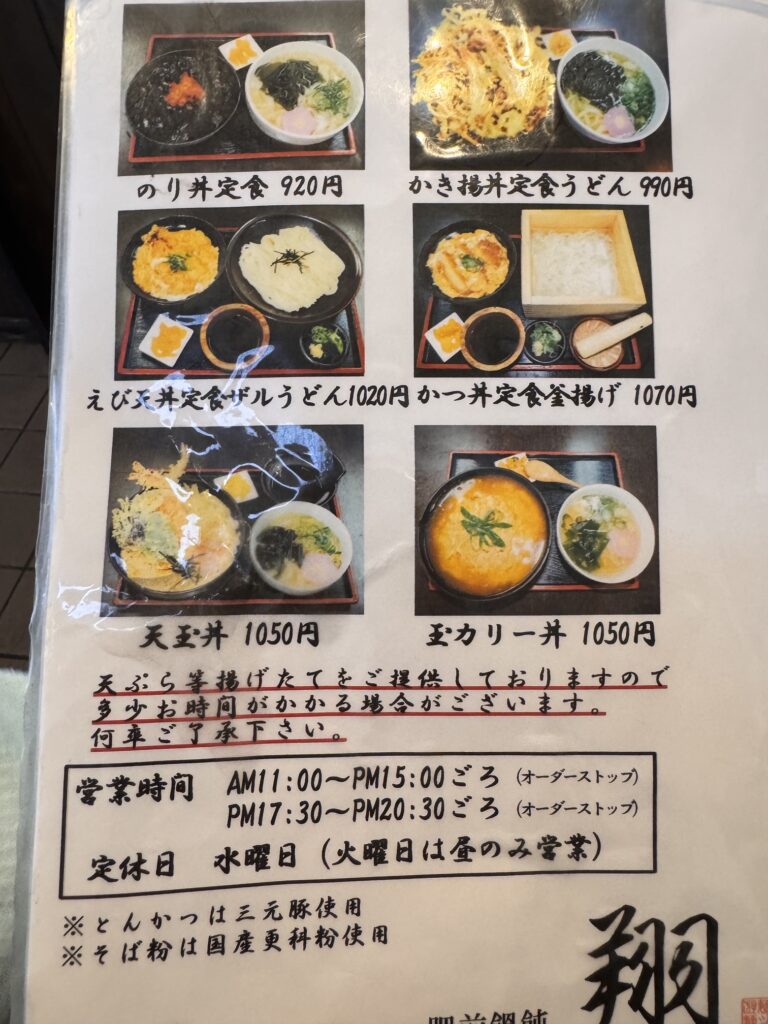 のり丼定食 920円
かき揚丼定食うどん 990円
えび天丼定食ザルうどん1020円
かつ丼定食釜揚げ 1070円
天玉丼 1050円
玉カリー丼 1050円
天ぷら等揚げたてをご提供しておりますので
多少お時間がかかる場合がございます。
何卒ご了承下さい。
営業時間 AM11:00～PM15:00ごろ (オーダーストップ)
PM17:30～PM20:30ごろ (オーダーストップ)
定休日 水曜日 (火曜日は昼のみ営業)
※とんかつは三元豚使用
※そば粉は国産更科粉使用
翔